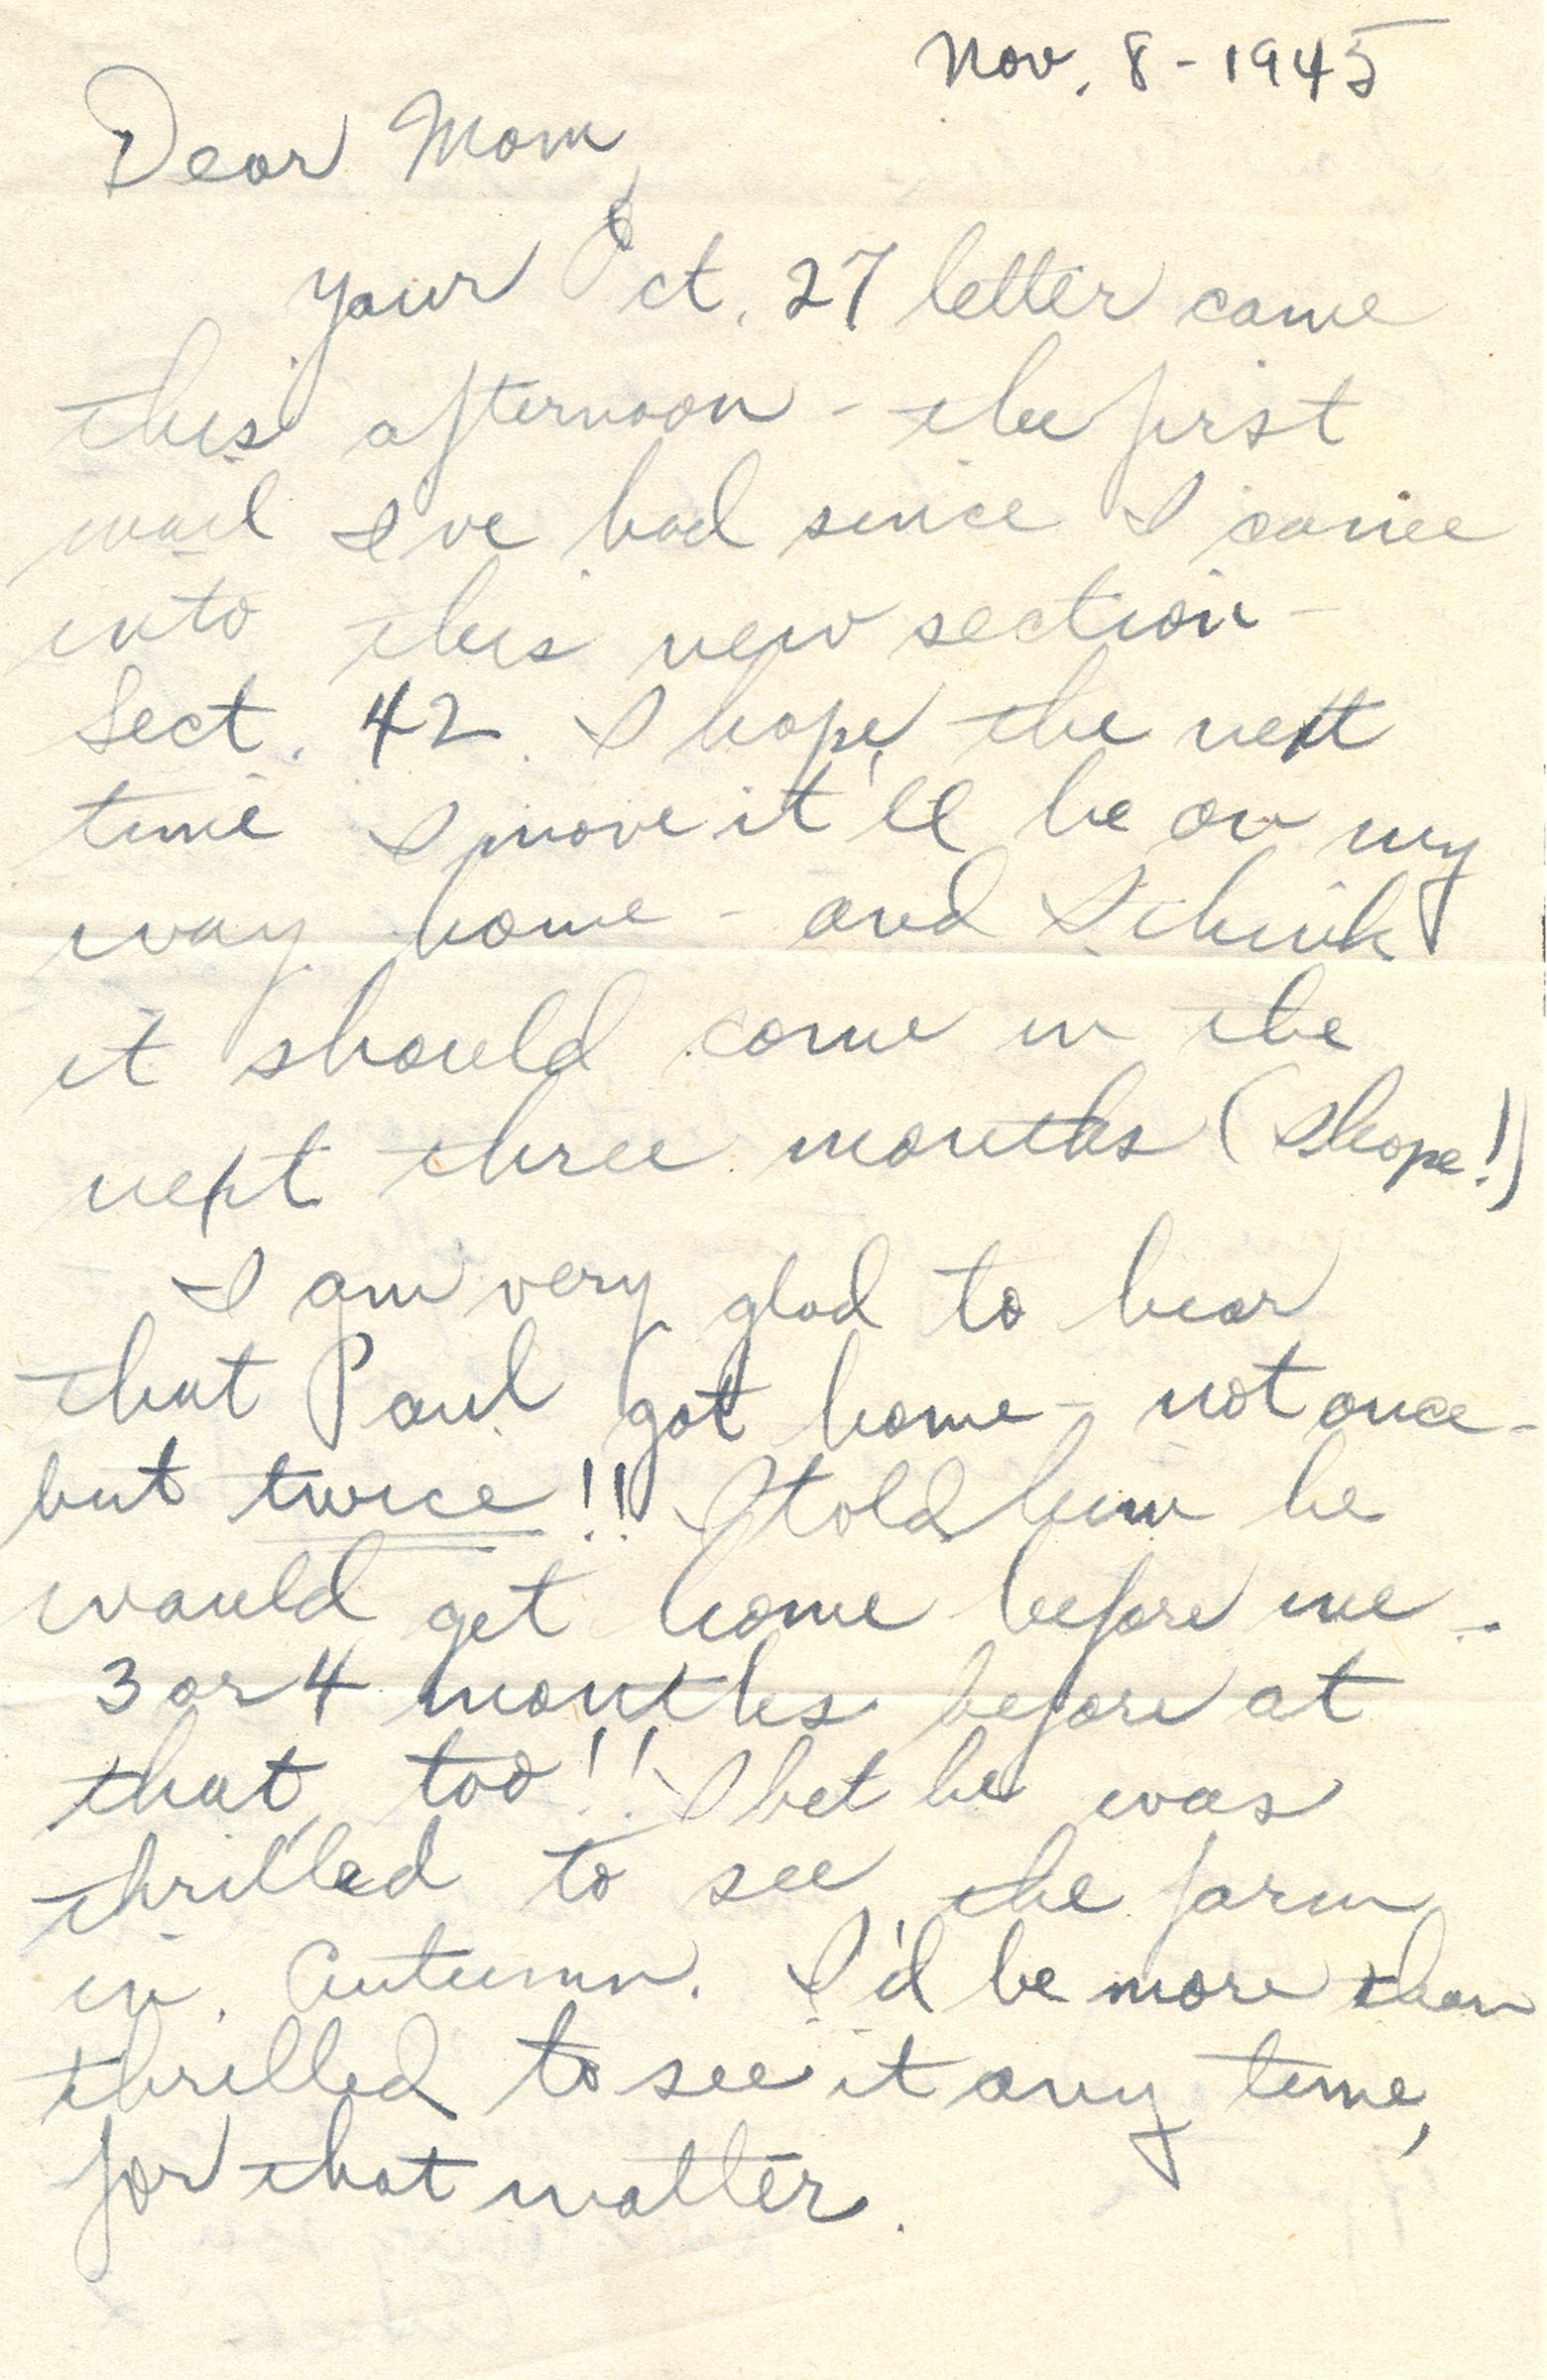 Nov. 8 - 1945
Dear Mom,
Your Oct. 27 letter came
this afternoon - the first
mail I've had since I came
into this new section -
Sect. 42. I hope the next
time I move it'll be on my
way home - and I think
it should come in the
next three months (I hope!)
I am very glad to hear
that Paul got home - not once -
but twice!! I told him he
would get home before me -
3 or 4 months before at
that, too!! I bet he was
thrilled to see the farm
in Autumn. I'd be more than
thrilled to see it any time,
for that matter.